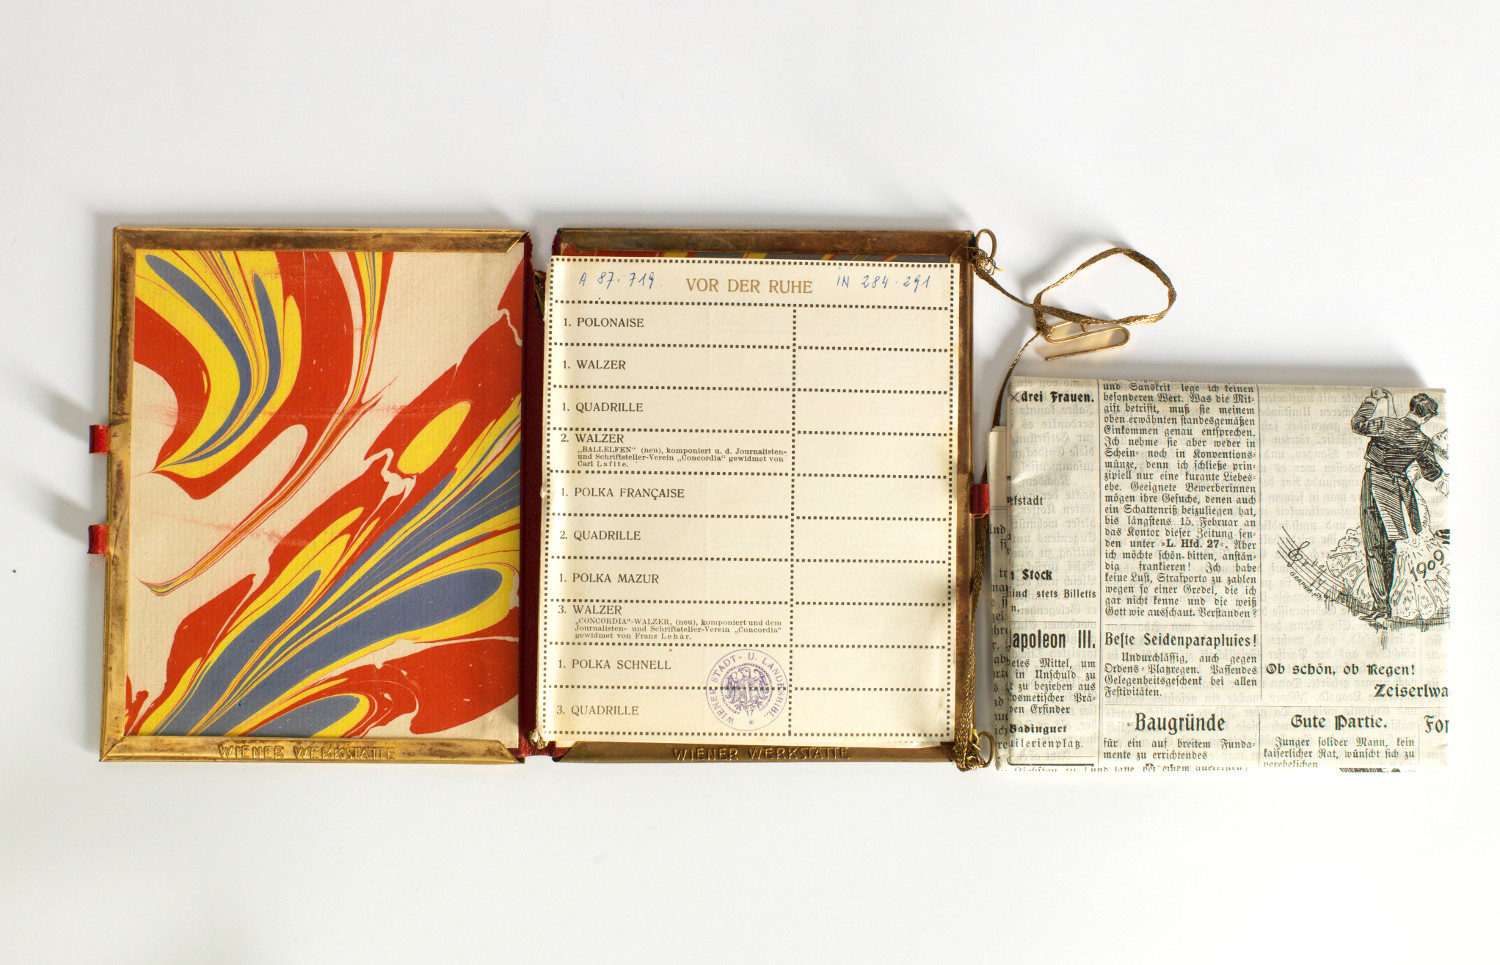 A 87.719.
VOR DER RUHE
IN 284.291
1. POLONAISE
1. WALZER
1. QUADRILLE
2. WALZER
„BALLELFEN" (neu), komponiert u. d. Journalisten-
und Schriftsteller-Verein „Concordia" gewidmet von
Carl Lafite.
1. POLKA FRANÇAISE
2. QUADRILLE
1. POLKA MAZUR
3. WALZER
„CONCORDIA"-WALZER, (neu), komponiert und dem
Journalisten- und Schriftsteller-Verein „Concordia"
gewidmet von Franz Lehár.
1. POLKA SCHNELL
3. QUADRILLE
WIENER STADT- U. LANDESBIBL.
WIENER WERKSTÄTTE
WIENER WERKSTÄTTE
drei Frauen.
Stock
sind stets Billetts
apoleon III.
Mittel, um
in Unschuld zu
zu beziehen aus
Erfinder
Badinguet
und Sanskrit lege ich keinen
besonderen Wert. Was die Mit-
gift betrifft, muß sie meinem
oben erwähnten standesgemäßen
Einkommen genau entsprechen.
Ich nehme sie aber weder in
Schein- noch in Konventions-
münze, denn ich schließe prin-
zipiell nur eine kurante Liebes-
ehe. Geeignete Bewerberinnen
mögen ihre Gesuche, denen auch
ein Schattenriß beizuliegen hat,
bis längstens 15. Februar an
das Kontor dieser Zeitung sen-
den unter »L. Hfd. 27«. Aber
ich möchte schön bitten, anstän-
dig frankieren! Ich habe
keine Lust, Strafporto zu zahlen
wegen so einer Gredel, die ich
gar nicht kenne und die weiß
Gott wie ausschaut. Verstanden?
Beste Seidenparapluies!
Undurchlässig, auch gegen
Ordens-Platzregen. Passendes
Gelegenheitsgeschenk bei allen
Festivitäten.
Baugründe
für ein auf breitem Funda-
mente zu errichtendes
1909
Ob schön, ob Regen!
Zeiserlwa
Gute Partie.
Junger solider Mann, kein
kaiserlicher Rat, wünscht sich zu
verehelichen
For